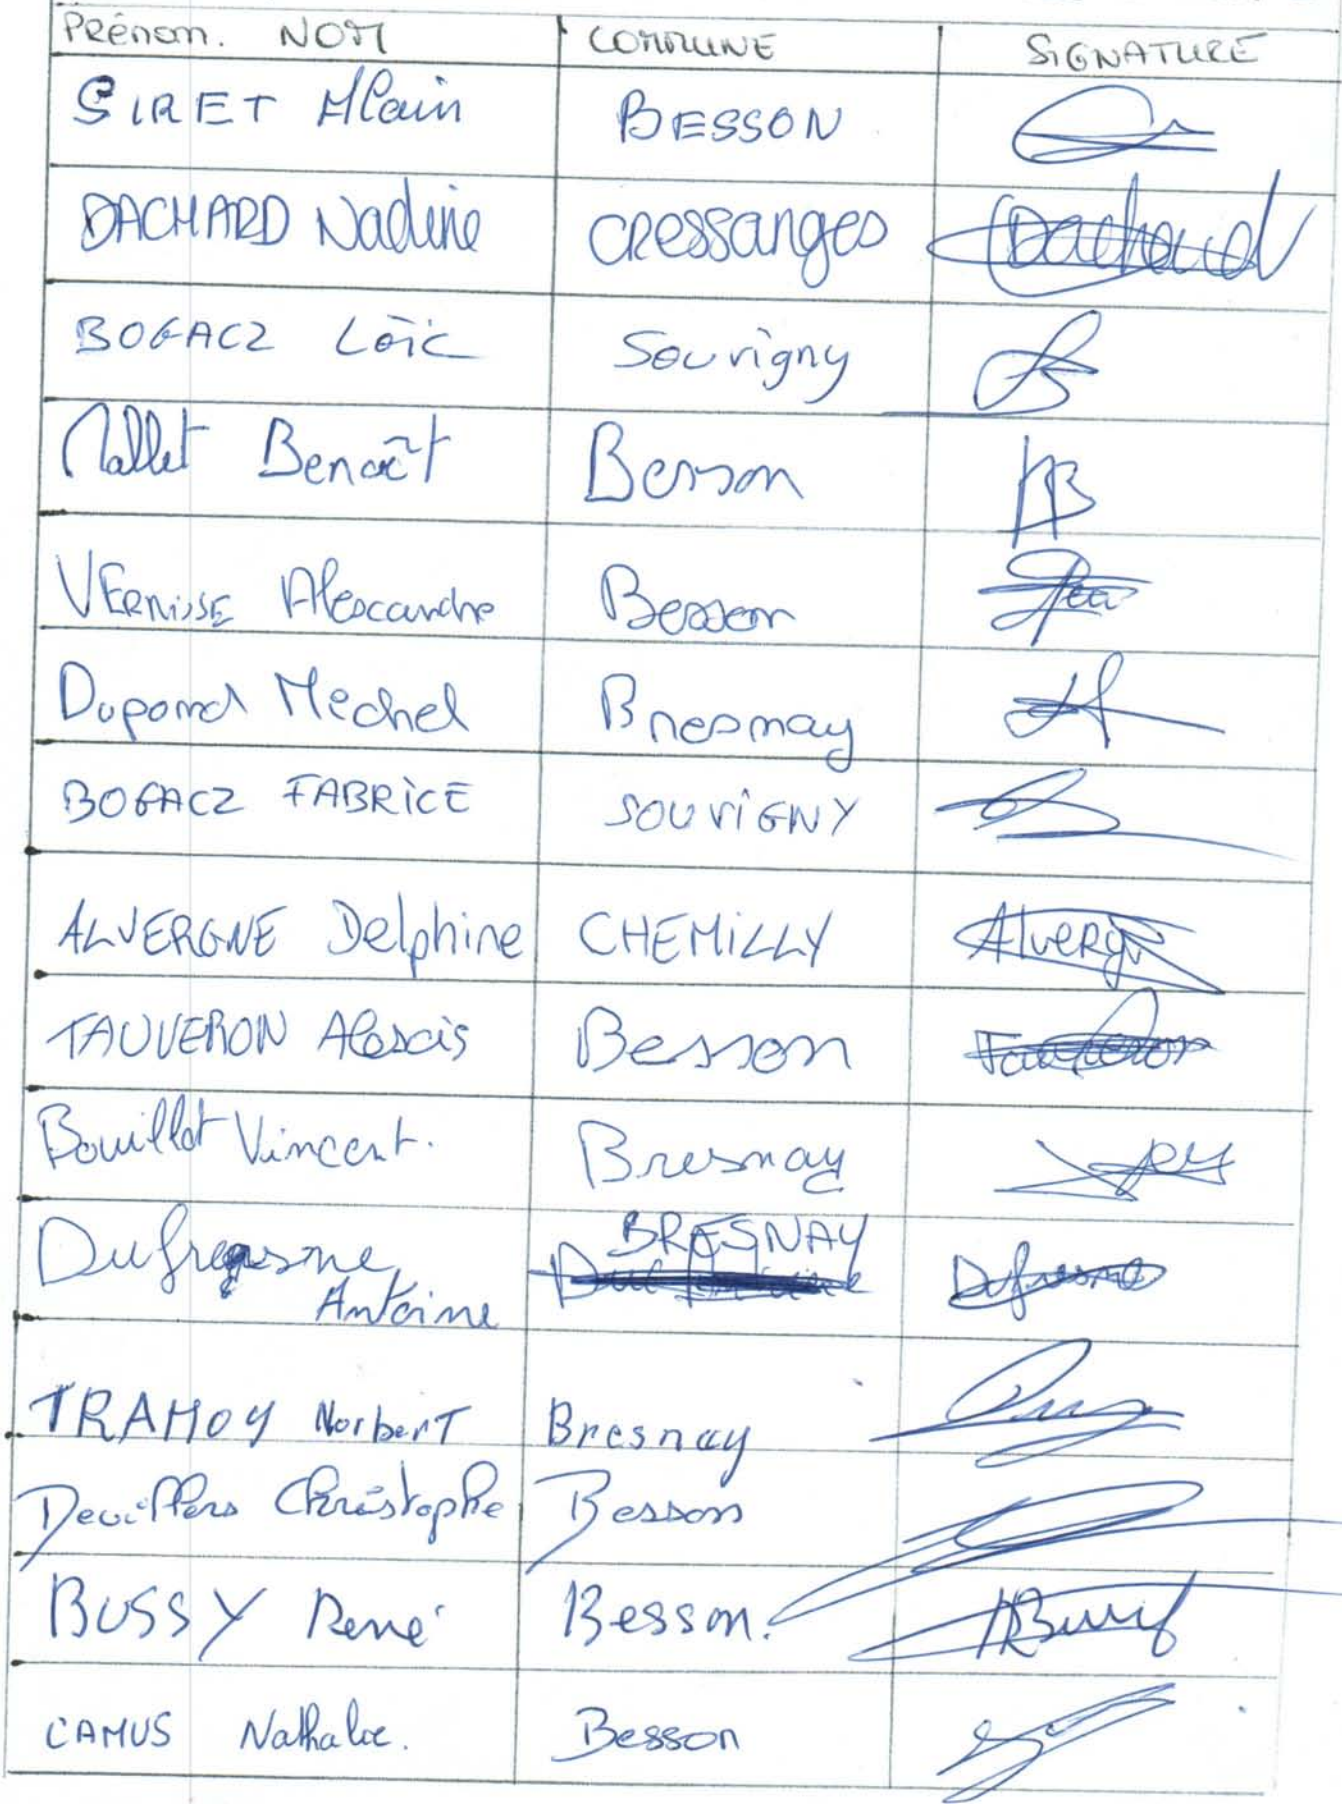 Prénom. NOM COMMUNE SIGNATURE
SIRET Alain BESSON
DACHARD Nadine CRessanges Dachard
BOGACZ Loïc Souvigny
Mallet Benoît Besson
VERNISSE Alexandre Besson
Dupond Michel Bresnay
BOGACZ FABRICE SOUVIGNY
ALVERGNE Delphine CHEMILLY Alvergne
TAUVERON Alexis Besson Tauveron
Bouillot Vincent. Bresnay
Dufresne Antoine BRESNAY Dufresne
TRAMOY Norbert Bresnay
Devillers Christophe Besson
BUSSY René Besson.
CAMUS Nathalie. Besson